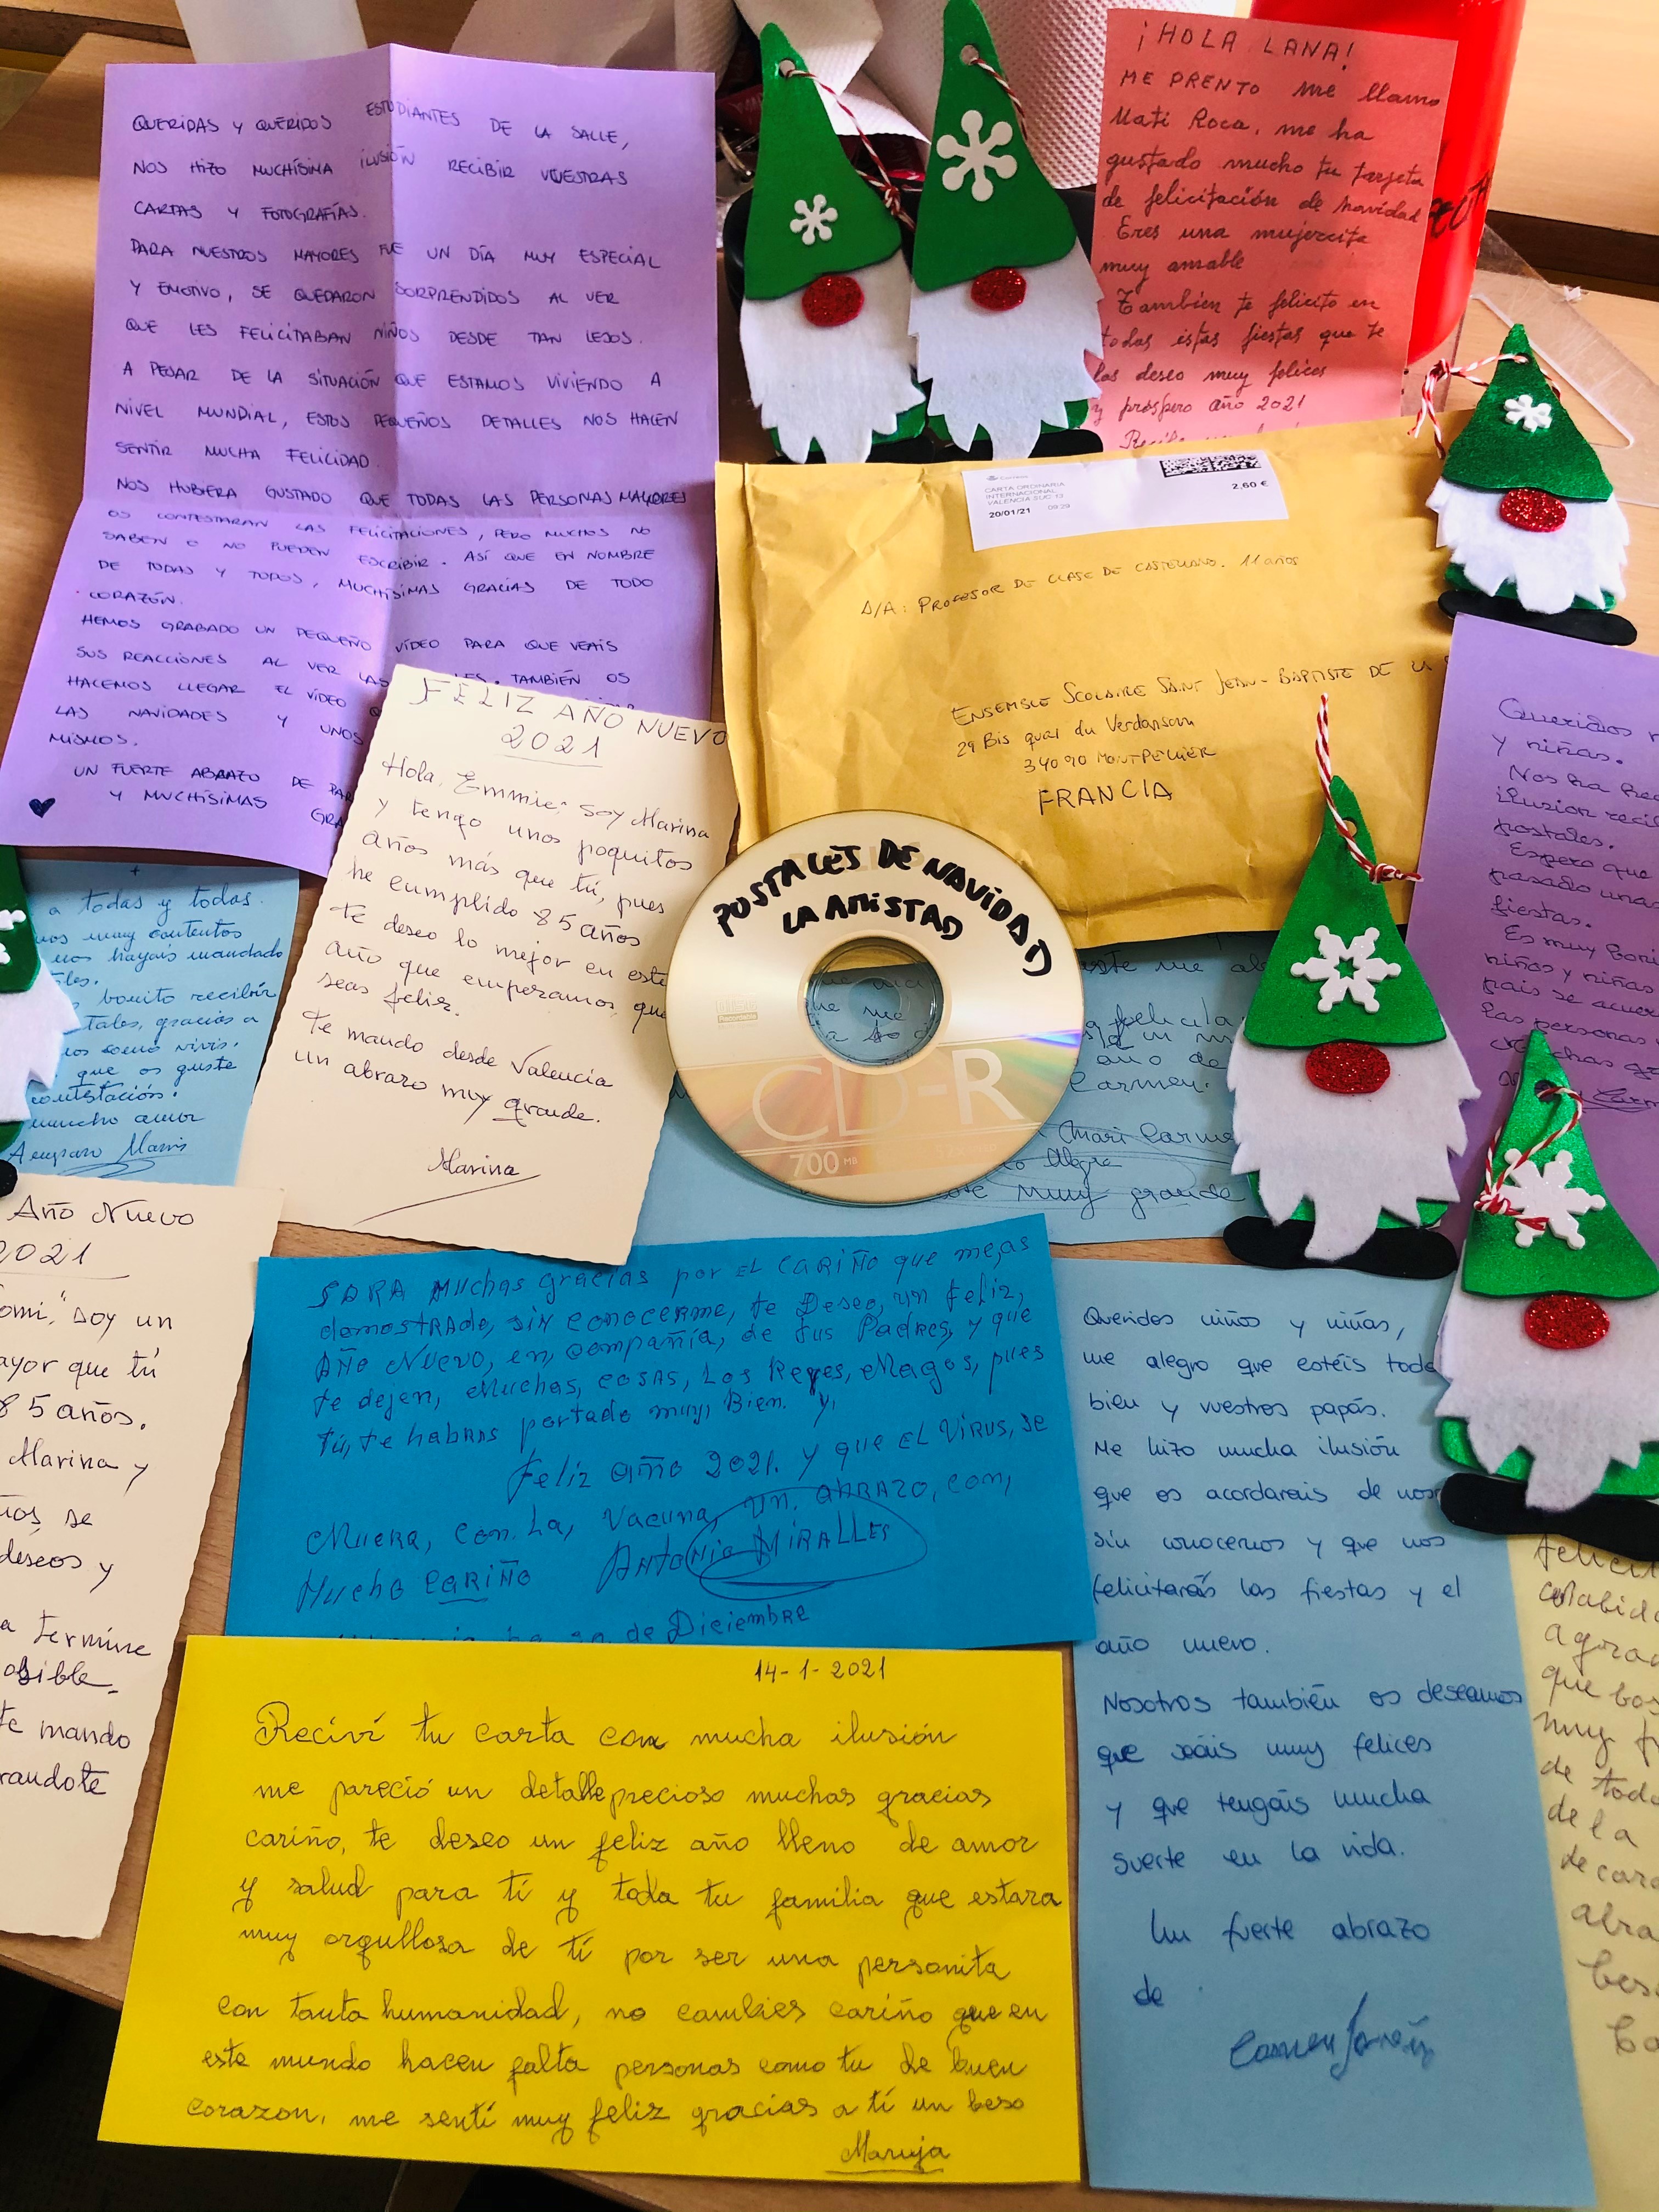 QUERIDAS Y QUERIDOS ESTUDIANTES DE LA SALLE,
NOS HIZO MUCHÍSIMA ILUSIÓN RECIBIR VUESTRAS
CARTAS Y FOTOGRAFÍAS.
PARA NUESTROS MAYORES FUE UN DÍA MUY ESPECIAL
Y EMOTIVO, SE QUEDARON SORPRENDIDOS AL VER
QUE LES FELICITABAN NIÑOS DESDE TAN LEJOS.
A PESAR DE LA SITUACIÓN QUE ESTAMOS VIVIENDO A
NIVEL MUNDIAL, ESTOS PEQUEÑOS DETALLES NOS HACEN
SENTIR MUCHA FELICIDAD.
NOS HUBIERA GUSTADO QUE TODAS LAS PERSONAS MAYORES
OS CONTESTARAN LAS FELICITACIONES, PERO MUCHOS NO
SABEN O NO PUEDEN ESCRIBIR. ASÍ QUE EN NOMBRE
DE TODAS Y TODOS, MUCHÍSIMAS GRACIAS DE TODO
CORAZÓN.
HEMOS GRABADO UN PEQUEÑO VÍDEO PARA QUE VEAIS
SUS REACCIONES AL VER LAS TAMBIÉN OS
HACEMOS LLEGAR EL VÍDEO
LAS NAVIDADES Y UNOS
MISMOS.
UN FUERTE ABRAZO DE
Y MUCHÍSIMAS
¡HOLA LANA!
ME PRENTO me llamo
Mati Roca, me ha
gustado mucho tu tarjeta
de felicitación de navidad
Eres una mujercita
muy amable
Tambien te felicito en
todas estas fiestas que te
las deseo muy felices
y próspero año 2021
Correos
CARTA ORDINARIA
INTERNACIONAL
VALENCIA SUC 13
20/01/21 09:29
2,60 €
A/A: PROFESOR DE CLASE DE CASTELLANO. 11 años
ENSEMBLE SCOLAIRE SAINT JEAN-BAPTISTE DE LA
29 Bis quai du Verdanson
34090 MONTPELLIER
FRANCIA
FELIZ AÑO NUEVO
2021
Hola, Emmie: soy Marina
y tengo unos poquitos
años más que tú, pues
he cumplido 85 años
te deseo lo mejor en este
año que empezamos, que
seas feliz.
te mando desde Valencia
un abrazo muy grande.
Marina
POSTALES DE NAVIDAD
LA AMISTAD
CD-R
700 MB
Carmen.
Mari Carmen
Alegra
muy grande
Queridos
y niñas.
Nos ha
ilusion
postales.
Espero que
pasado unas
fiestas.
Es muy
niñas y niñas
pais se
las personas
a todas y todos.
muy contentos
nos hayáis mandado
bonito recibir
gracias a
como vivis.
que os guste
contestación.
mucho amor
Amparo
Año Nuevo
2021
soy un
que tú
85 años.
Marina y
se
deseos y
termine
te mando
SARA Muchas gracias por EL CARIÑO que me, as
demostRAdo, SIN CONOCERME, te Deseo, un Feliz,
AÑO NUEVO, en, compañia, de tus Padres, y que
te dejen, Muchas, cosas, Los Reyes, Magos, pues
tú, te habRAS portado muy, Bien. y,
Feliz año 2021. y que EL VIRUS, se
MUERA, con. La, Vacuna, un. abRAZO, con,
Mucho CARIÑO ANTONIO MIRALLES
de Diciembre
14-1-2021
Reciví tu carta con mucha ilusión
me pareció un detalle precioso muchas gracias
cariño, te deseo un feliz año lleno de amor
y salud para tí y toda tu familia que estara
muy orgullosa de tí por ser una personita
con tanta humanidad, no cambies cariño que en
este mundo hacen falta personas como tu de buen
corazon, me sentí muy feliz gracias a tí un beso
Maruja
Queridos niños y niñas,
me alegro que estéis
bien y vuestros papás.
Me hizo mucha ilusión
que os acordarais de
sin conocernos y que nos
felicitarás las fiestas y el
año nuevo.
Nosotros también os deseamos
que seáis muy felices
y que tengáis mucha
suerte en la vida.
Un fuerte abrazo
de
Carmen
muy
de
de la
de